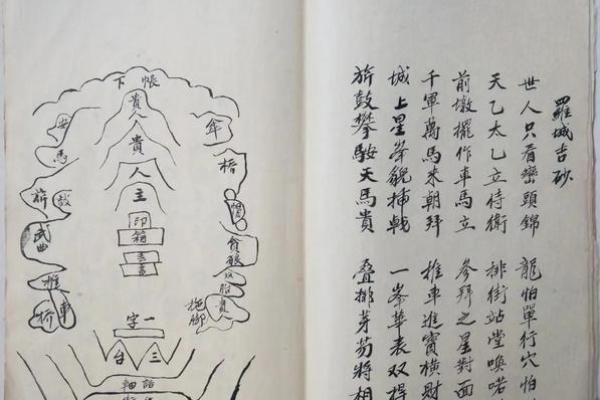 羅城吉砂
世人只看巒頭錦 龍怕單行穴怕
天乙太乙立侍衛 排衙站堂喚喏
前墩擺作車馬立 參拜之星對面
千軍萬馬來朝拜 推車進寶橫財
城上星峯貌插戟 一峯華表双桿
旂鼓攀鞍天馬貴 叠排芽笏將相
帳下
貴人
貴
人
主
印箱
傘
馬
椅
旂鼓
武曲
推車
施腳
一字
三台
誥軸